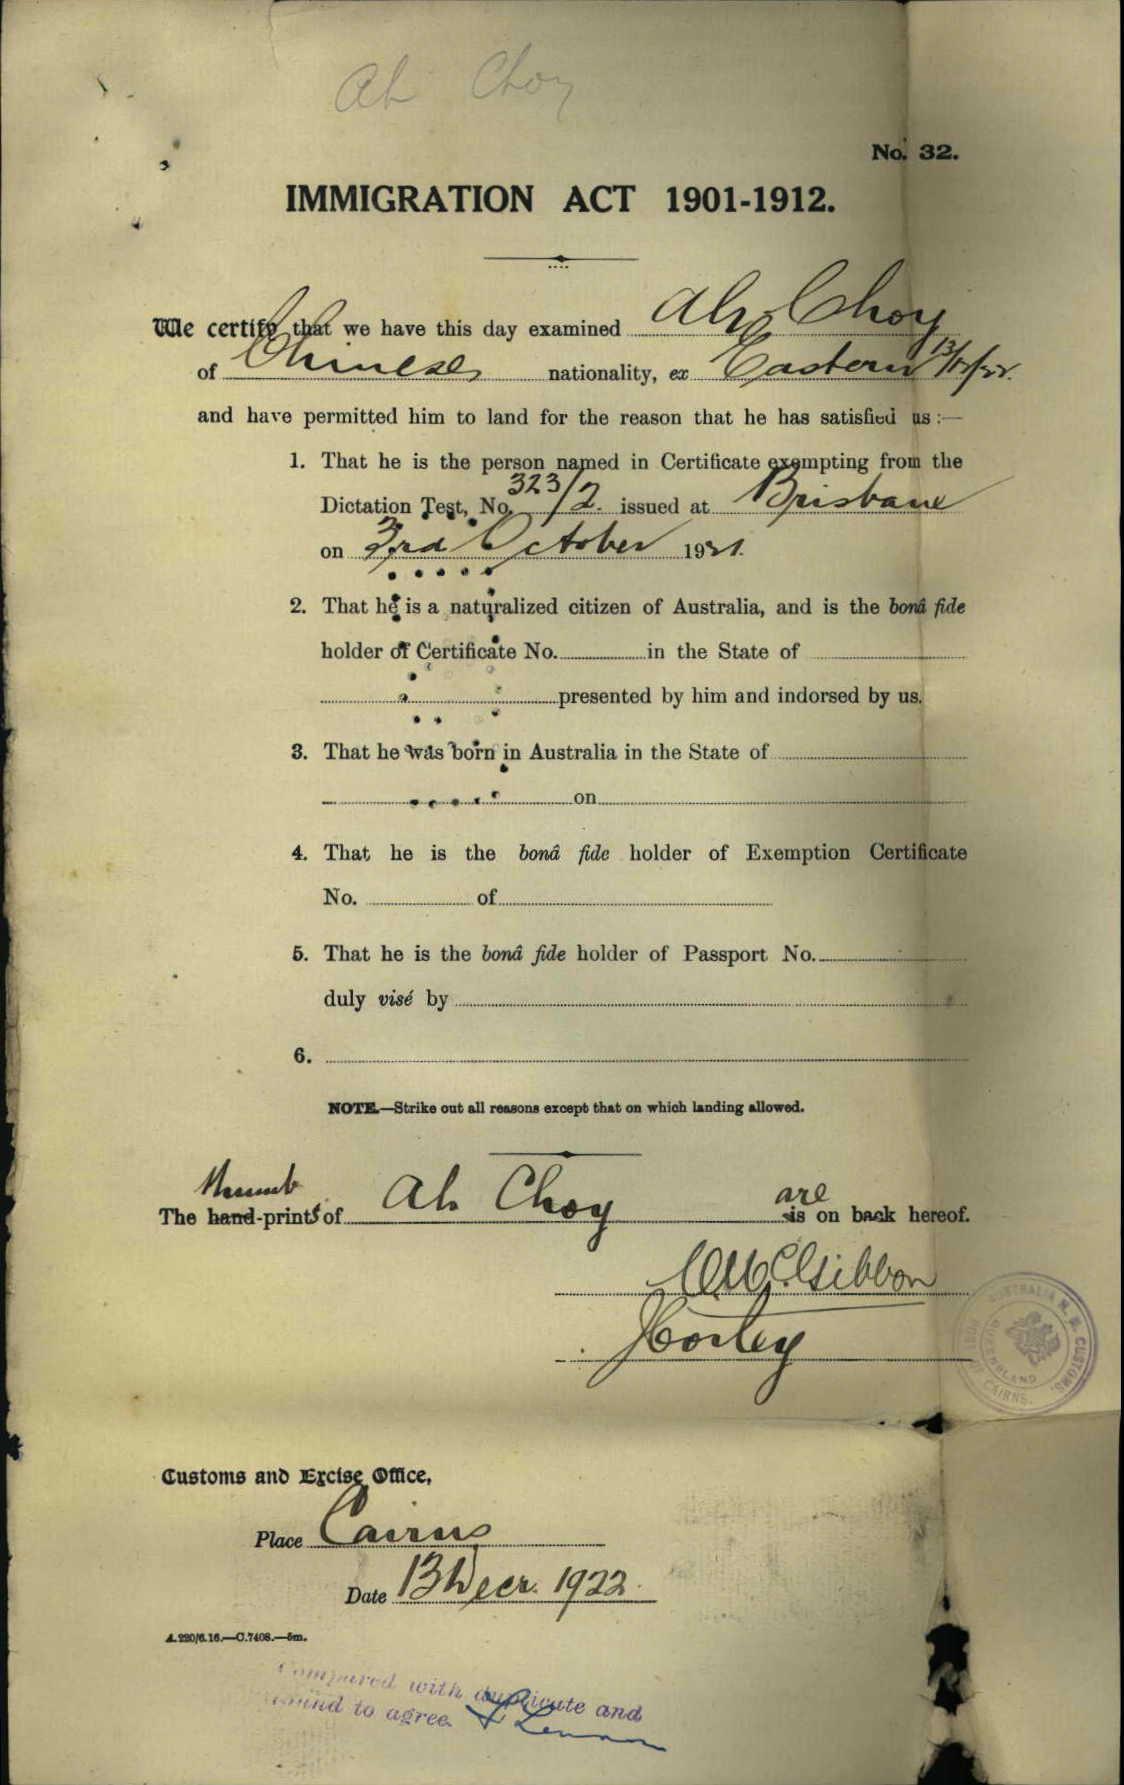 Ah Choy
No. 32.
IMMIGRATION ACT 1901-1912.
We certify that we have this day examined Ah Choy
of Chinese nationality, ex Eastern 13/12/22.
and have permitted him to land for the reason that he has satisfied us :—
1. That he is the person named in Certificate exempting from the
Dictation Test, No. 323/2. issued at Brisbane
on 3rd October 1921.
2. That he is a naturalized citizen of Australia, and is the bonâ fide
holder of Certificate No. in the State of
presented by him and indorsed by us.
3. That he was born in Australia in the State of
on
4. That he is the bonâ fide holder of Exemption Certificate
No. of
5. That he is the bonâ fide holder of Passport No.
duly visé by
6.
NOTE.—Strike out all reasons except that on which landing allowed.
Thumb are
The hand-prints of Ah Choy is on back hereof.
McGibbon
AUSTRALIA H. M. CUSTOMS.
QUEENSLAND
CAIRNS.
Customs and Excise Office,
Place Cairns
Date 13 Decr. 1922.
A.220/6.16.—C.7408.—5m.
Compared with duplicate and
found to agree. Lennon